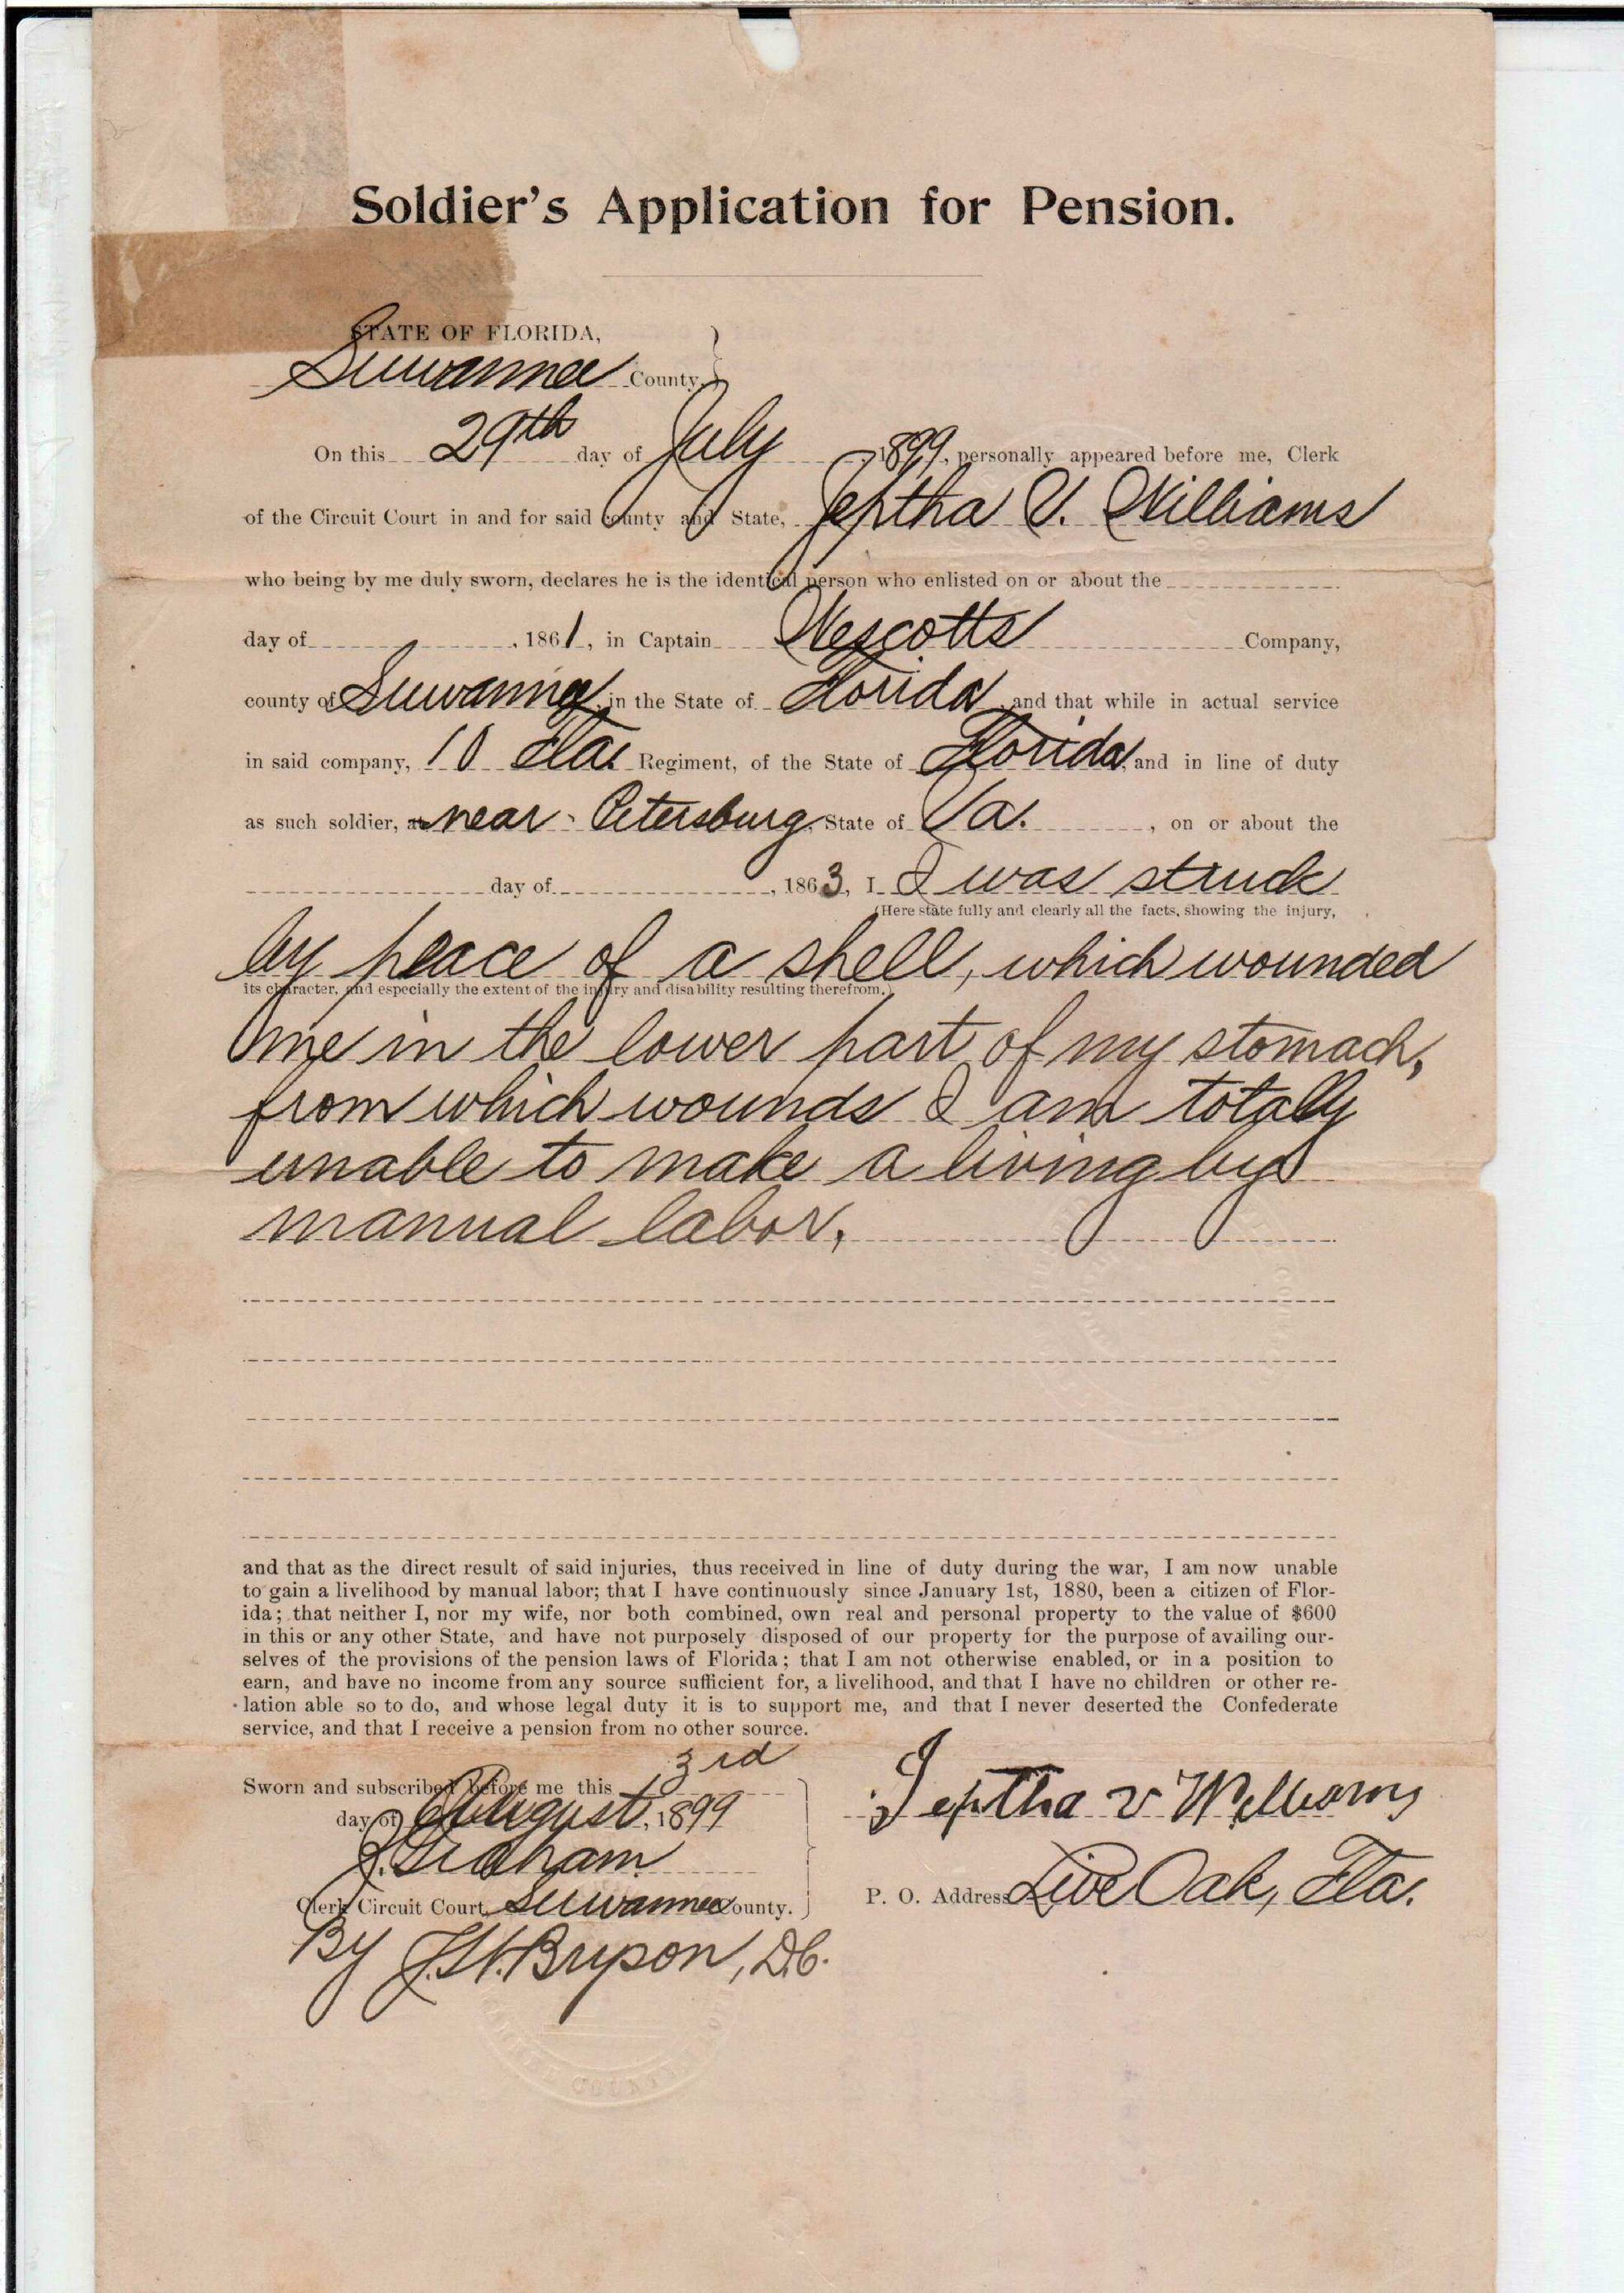 Soldier's Application for Pension.
STATE OF FLORIDA,
Suwannee County.
On this 29th day of July, 1899, personally appeared before me, Clerk
of the Circuit Court in and for said County and State, Jeptha V. Williams
who being by me duly sworn, declares he is the identical person who enlisted on or about the
day of , 1861, in Captain Wescotts Company,
county of Suwannee, in the State of Florida, and that while in actual service
in said company, 10 Fla. Regiment, of the State of Florida, and in line of duty
as such soldier, at near Petersburg, State of Va. , on or about the
day of , 1863, I I was struck
(Here state fully and clearly all the facts, showing the injury,
by peace of a shell, which wounded
its character, and especially the extent of the injury and disability resulting therefrom.)
me in the lower part of my stomach,
from which wounds I am totally
unable to make a living by
manual labor.
and that as the direct result of said injuries, thus received in line of duty during the war, I am now unable
to gain a livelihood by manual labor; that I have continuously since January 1st, 1880, been a citizen of Flor-
ida; that neither I, nor my wife, nor both combined, own real and personal property to the value of $600
in this or any other State, and have not purposely disposed of our property for the purpose of availing our-
selves of the provisions of the pension laws of Florida; that I am not otherwise enabled, or in a position to
earn, and have no income from any source sufficient for, a livelihood, and that I have no children or other re-
lation able so to do, and whose legal duty it is to support me, and that I never deserted the Confederate
service, and that I receive a pension from no other source.
Sworn and subscribed before me this 3rd
day of August, 1899
Jeptha v Williams
Graham
Clerk Circuit Court, Suwannee County.
P. O. Address Live Oak, Fla.
By J.W. Bryson, D.C.